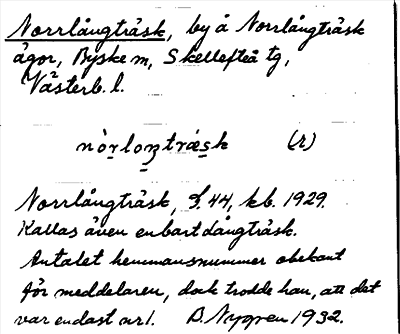 Norrlångträsk, by å Norrlångträsk
ägor, Byske sn, Skellefteå tg,
Västerb. l.
nòrlɔŋträsk (r)
Norrlångträsk, J. 44, kb. 1929.
Kallas även enbart Långträsk.
Antalet hemmansnummer obekant
för meddelaren, dock trodde han, att det
var endast nr 1. B. Nygren 1932.